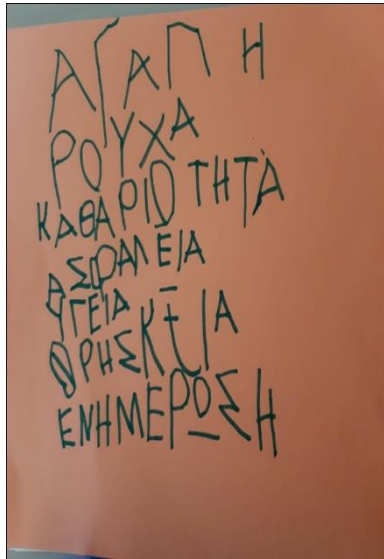 ΑΓΑΠΗ
ΡΟΥΧΑ
ΚΑΘΑΡΙΟΤΗΤΑ
ΑΣΦΑΛΕΙΑ
ΥΓΕΙΑ
ΘΡΗΣΚΕΙΑ
ΕΝΗΜΕΡΩΣΗ